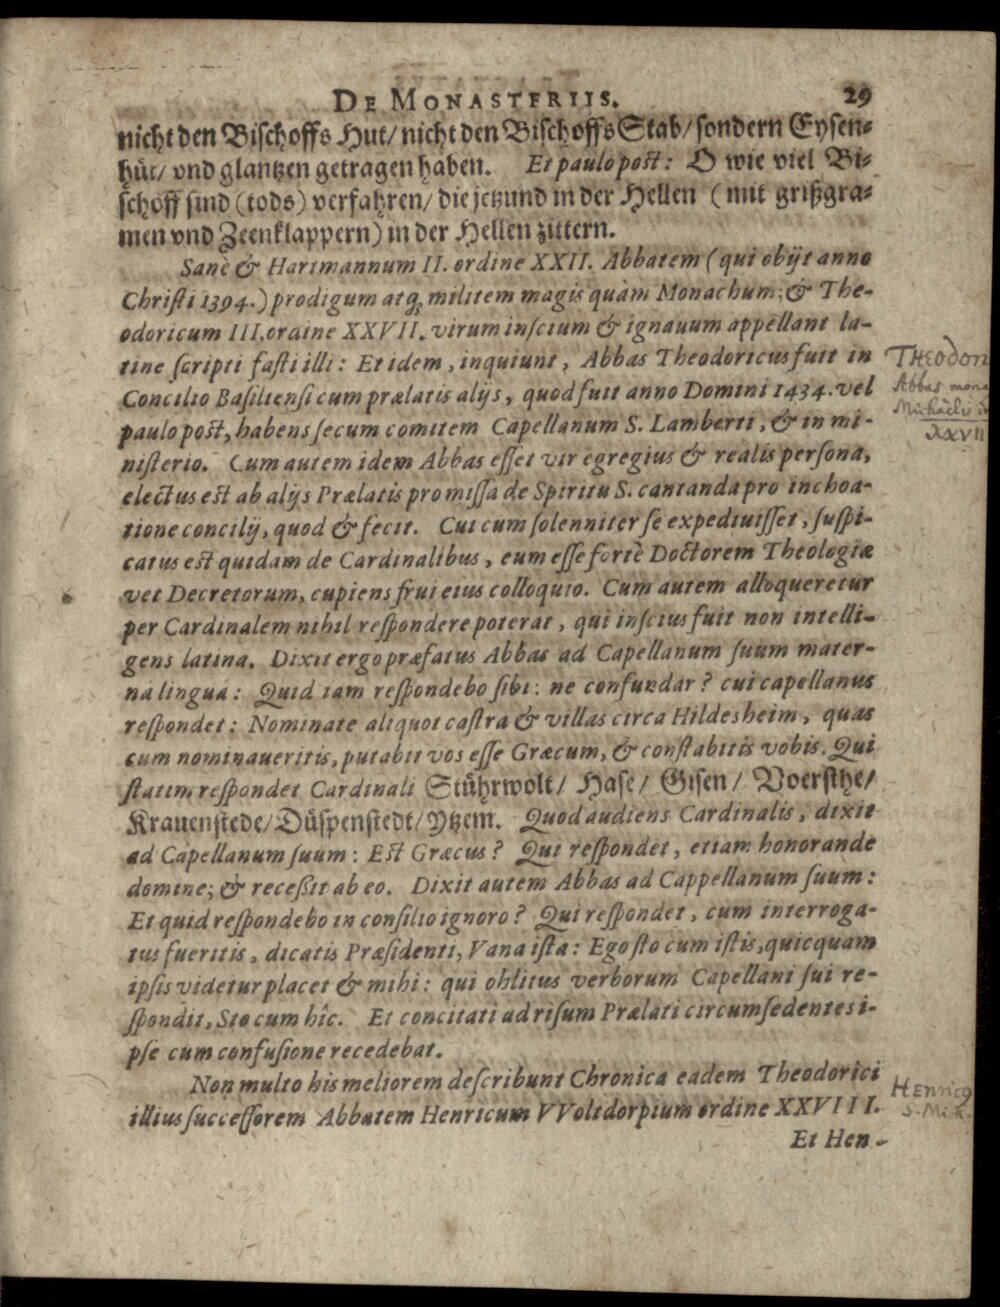 DE MONASTERIIS. 29
nicht den Bischoffs Hut/ nicht den Bischoffs Stab/ sondern Eysen-
hüt/ vnd glantzen getragen haben. Et paulo post: O wie viel Bi-
schöff sind (tods) verfahren/ die jetzund in der Hellen (mit grißgra-
men vnd Zeenklappern) in der Hellen zittern.
Sanè & Hartmannum II. ordine XXII. Abbatem (qui obijt anno
Christi 1394.) prodigum atq; militem magis quàm Monachum; & The-
odoricum III. ordine XXVII. virum inscium & ignauum appellant la-
tine scripti fasti illi: Et idem, inquiunt, Abbas Theodoricus fuit in
Concilio Basiliensi cum prælatis alijs, quod fuit anno Domini 1434. vel
paulo post, habens secum comitem Capellanum S. Lamberti, & in mi-
nisterio. Cum autem idem Abbas esset vir egregius & realis persona,
electus est ab alijs Prælatis pro missa de Spiritu S. cantanda pro inchoa-
tione concilij, quod & fecit. Cui cum solenniter se expediuisset, suspi-
catus est quidam de Cardinalibus, eum esse fortè Doctorem Theologiæ
vel Decretorum, cupiens frui eius colloquio. Cum autem alloqueretur
per Cardinalem nihil respondere poterat, qui inscius fuit non intelli-
gens latina. Dixit ergo præfatus Abbas ad Capellanum suum mater-
na lingua: Quid iam respondebo sibi: ne confundar? cui capellanus
respondet: Nominate aliquot castra & villas circa Hildesheim, quas
cum nominaueritis, putabit vos esse Græcum, & constabitis vobis. Qui
statim respondet Cardinali Stührwolt/ Hase/ Gisen/ Voersthe/
Krauenstede/ Düspenstedt/ Ytzem. Quod audiens Cardinalis, dixit
ad Capellanum suum: Est Græcus? Qui respondet, etiam honorande
domine; & recessit ab eo. Dixit autem Abbas ad Cappellanum suum:
Et quid respondebo in consilio ignoro? Qui respondet, cum interroga-
tus fueritis, dicatis Præsidenti, Vana ista: Ego sto cum istis, quicquam
ipsis videtur placet & mihi: qui oblitus verborum Capellani sui re-
spondit, Sto cum hîc. Et concitati ad risum Prælati circumsedentes i-
pse cum confusione recedebat.
Non multo his meliorem describunt Chronica eadem Theodorici
illius successorem Abbatem Henricum VVoltdorpium ordine XXVIII.
Et Hen-
THEODORI
Abbas mona
Michaëli in
XXVII
HEnricg
S. Mich.